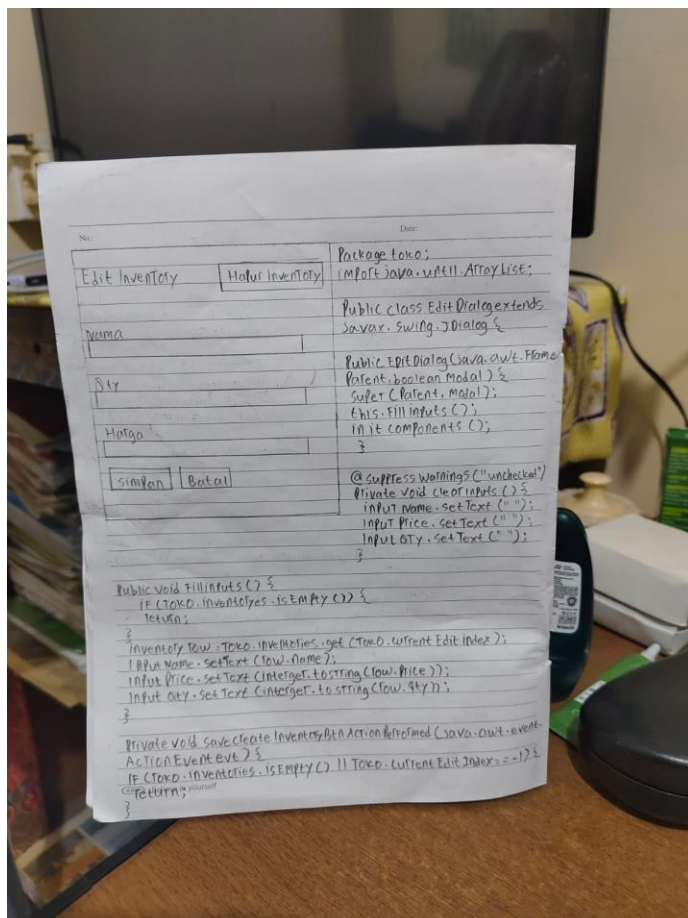 No:
Date:
Edit Inventory
Hapus Inventory
Nama
Qty
Harga
Simpan
Batal
Package toko;
import java.until.ArrayList;
Public class Edit Dialog extends
Javax.swing.JDialog {
Public EDitDialog(java.awt.Frame
Parent.boolean Modal) {
super (Parent, Modal);
this.Fill inputs ();
in it components ();
}
@ suppress warnings ("unchecked")
Private void clearinputs () {
input Name.setText (" ");
Input Price.setText (" ");
Input QTY.setText (" ");
}
Public void Fillinputs () {
IF (TOKO.inventoryes.isEmpty ()) {
return;
}
inventory row = Toko.inventories.get (TOKO.current Edit index);
Input Name.setText (row.name);
Input Price.setText (interger.tostring (row.Price));
Input Qty.setText (interger.to string (row.qty));
}
Private void savecreate InventoryBtn Action Performed (java.awt.event.
ActionEvent evt) {
IF (TOKO.inventories.isEmpty () || TOKO.current Edit Index == -1) {
return;
yourself
}